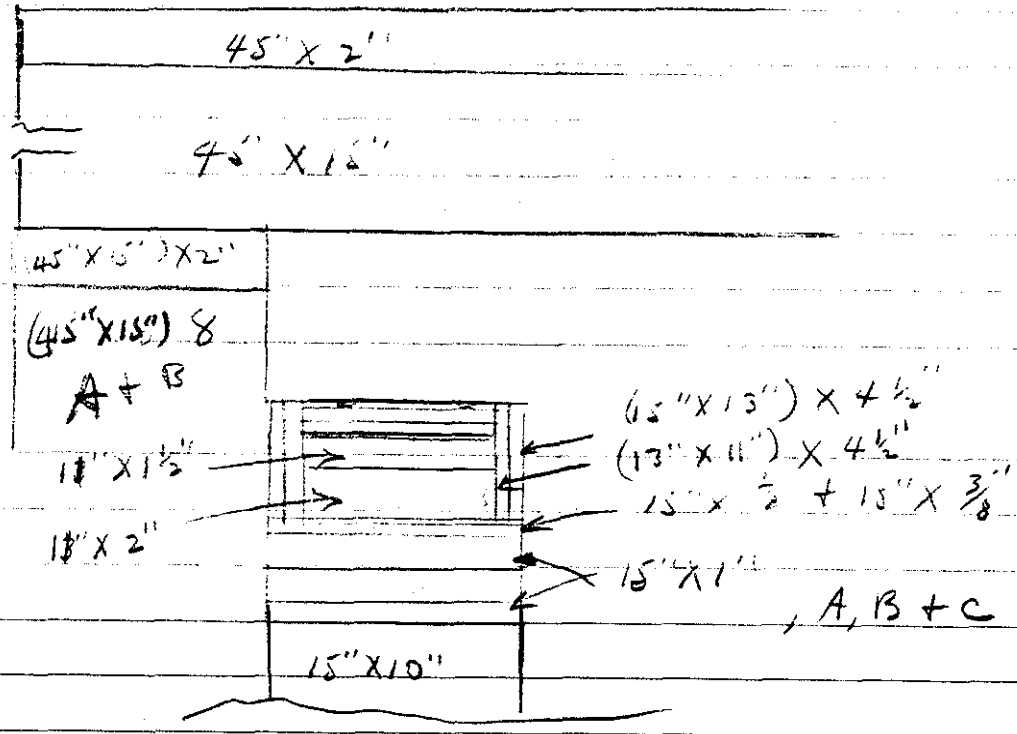 45" X 2"
45" X 15"
(45" X 15") X 2"
(45" X 15") 8
A + B
(15" X 13") X 4 1/2"
11" X 1 1/2"
(13" X 11") X 4 1/2"
15" X 1/2 + 15" X 3/8"
11" X 2"
15" X 1"
, A, B + C
15" X 10"